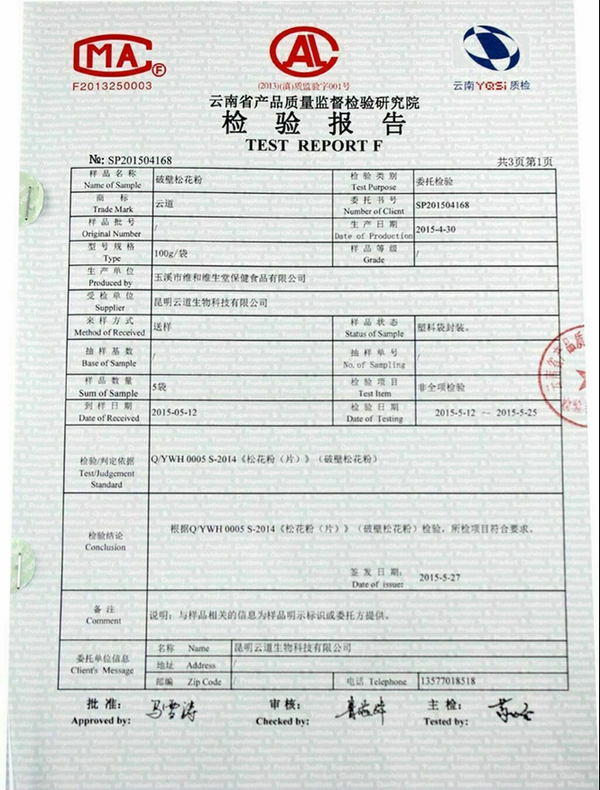 CMA F
F2013250003
CAL
(2013)(滇)质监验字001号
云南YQSI质检
云南省产品质量监督检验研究院
检 验 报 告
TEST REPORT F
№: SP201504168
共3页第1页
样品名称 Name of Sample 破壁松花粉 检验类别 Test Purpose 委托检验
商标 Trade Mark 云道 委托书号 Number of Client SP201504168
样品批号 Original Number / 生产日期 Date of Production 2015-4-30
型号规格 Type 100g/袋 样品等级 Grade /
生产单位 Produced by 玉溪市维和维生堂保健食品有限公司
受检单位 Supplier 昆明云道生物科技有限公司
来样方式 Method of Received 送样 样品状态 Status of Sample 塑料袋封装。
抽样基数 Base of Sample / 抽样单号 No. of Sampling /
样品数量 Sum of Sample 5袋 检验项目 Test Item 非全项检验
到样日期 Date of Received 2015-05-12 检验日期 Date of Testing 2015-5-12 ～ 2015-5-25
检验/判定依据 Test/Judgement Standard Q/YWH 0005 S-2014《松花粉（片）》（破壁松花粉）
检验结论 Conclusion 根据Q/YWH 0005 S-2014《松花粉（片）》（破壁松花粉）检验，所检项目符合要求。
签发日期: Date of issue: 2015-5-27
备注 Comment 说明：与样品相关的信息为样品明示标识或委托方提供。
委托单位信息 Client's Message
名称 Name 昆明云道生物科技有限公司
地址 Address /
邮编 Zip Code / 电话 Telephone 13577018518
批准: Approved by: 马雪涛 审核: Checked by: 主检: Tested by: